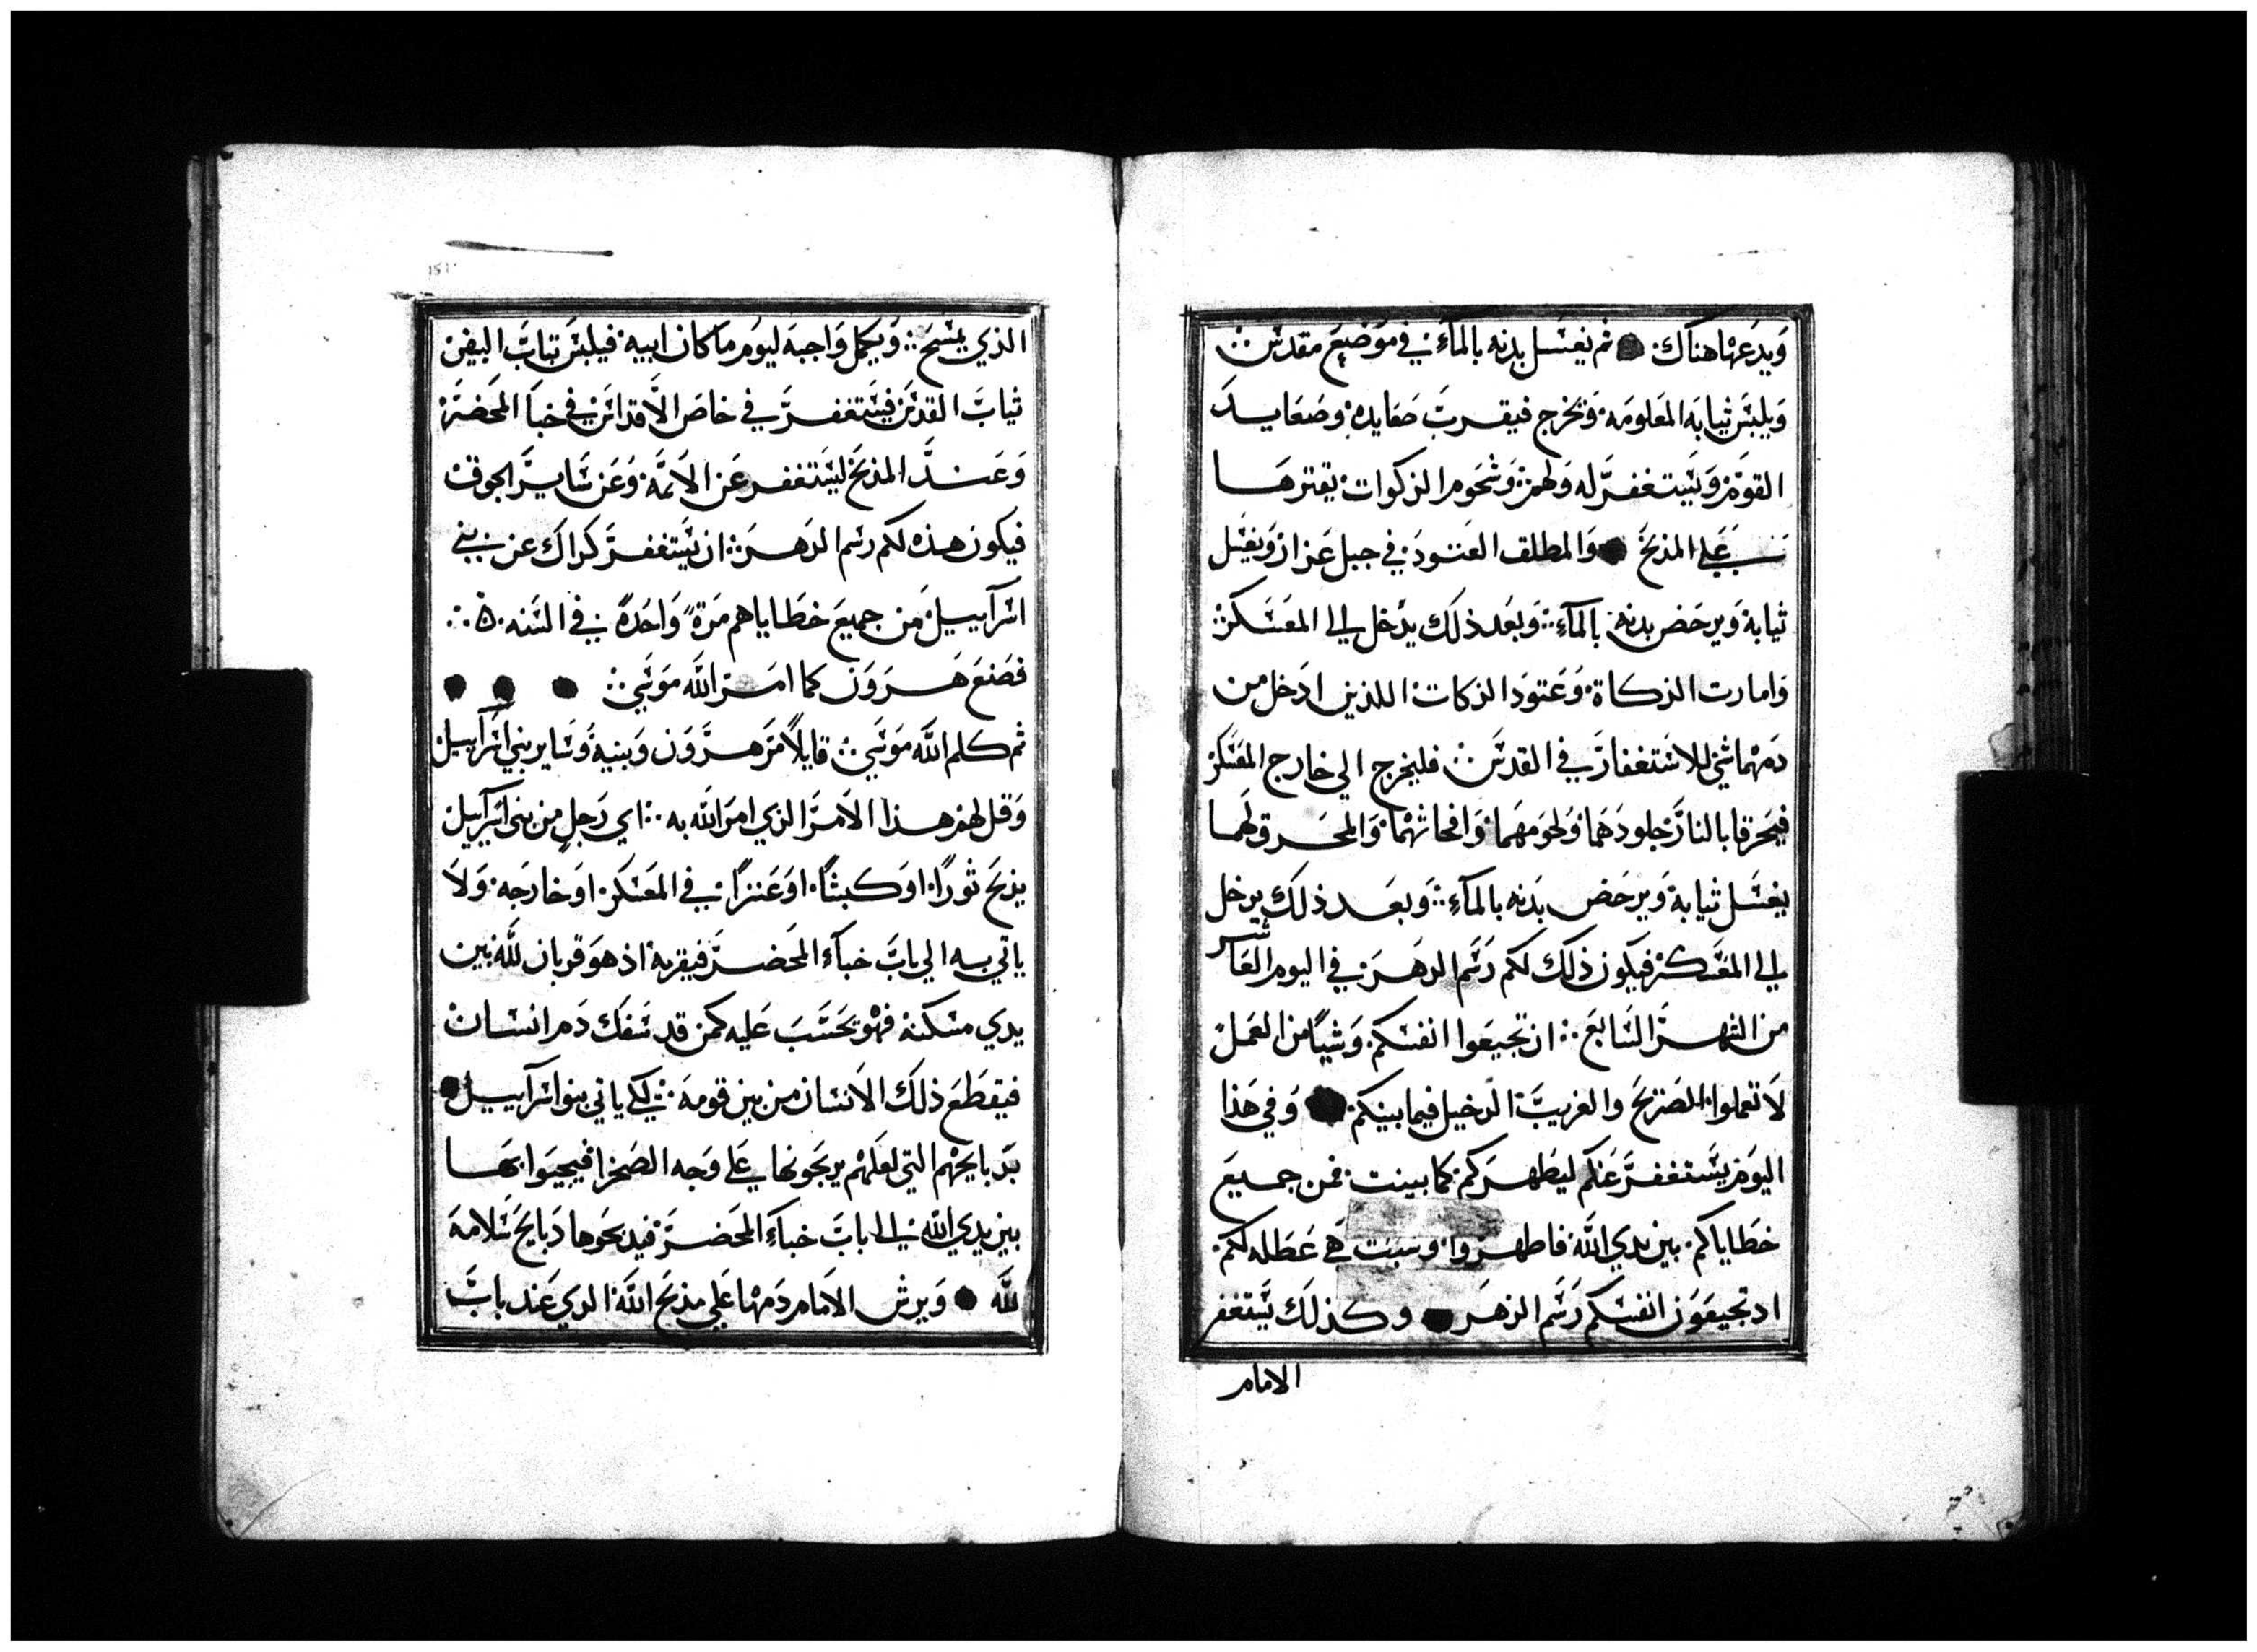 وَيدَعَها هناك ثم يغسَل بدنه بالمآءَ في مَوَضِعَ مقدسَ
وَيلبسَ ثيابَه المعَلومَه وَيخرج فيقربَ صَعَايده وصَعَايدَ
القومَ وَيسَتغفرَ له وَلهم وَشحَومر الزكوات يقترهَا
عَلى المذبحَ وَالمطلق العَتودَ في جبل عَزاز وَيغسَل
ثيابة وَيرحَض بدنه بالمآءِ وَبعَد ذلَك يدَخل الى المعَسَكر
وَامارت الزكاة وَعَتوَد الزكاتَ اللذين ادَخل من
دمَهما شي للاسَتغفارَ في القدسَ فليخرج الي خارج المعَسَكر
فيحَرقا بالنارَ جلودَهَما وَلحَومَهَما وَافحاثهما وَالمحَرق لهَما
يغسَل ثيابة وَيرحَض بَدنه بالمآءِ وَبعَد ذلَك يدخل
الى المعَسَكر فيكون ذلَك لكم رَسَم الدهَرَ في اليومر العَاشر
من الشهرَ السَابعَ ان تجيعَوا انفسَكم وَشيًا من العَملَ
لَا تعَملوا الصَريحَ والغريبَ الدخيل فيما بينكم وَفي هَذا
اليوَم يسَتغفرَ عَنكم ليطَهرَكم كما بينت فمن جميَع
خطَاياكم بين يدي اللَه فاطهروا وسَبت هَي عَطَله لكم
اد تجيعَوَن انفسَكم رَسَم الدهَرَ وكذلَك يسَتغفر
الامامر
الذي يمسَحَ وَيكمل وَاجبهَ ليومر مَا كان ابيه فيلبسَ ثيابَ البيض
ثيابَ القدسَ فيسَتغفرَ في خاصَ الأَقداسَ في خبآ المحَضرَ
وَعَندَ المذبحَ ليسَتغفر عَن الاَئمَه وَعَن سَايرَ الجوق
فيكون هَذه لكم رسَم الدهَرَ ان يسَتغفرَ كداكَ عن بني
اسَرآييلَ مَن جميعَ خطَاياهم مَرَةً وَاحدَةً في السَنه
فصَنعَ هَرَوَن كما امَر اللَه مَوَسَي
ثم كلم اللَه مَوَسَي قايلاً مَرَ هرَوَن وَبنيه وَسَاير بني اسَرآييل
وَقل لهم هذا الاَمرَ الذي امرَ اللَه به اي رَجلٍ من بني اسَرآييل
يذبحَ ثورًا اوَ كبشًا اوَ عَنزًا في المعَسَكر اوَ خارجَه وَلَا
ياتي به الي بابَ خبآءَ المحَضرَ فيقربه اذ هوَ قربان لله بين
يدي مسَكنه فهوَ يحَسَبَ عَليه كمن قد سَفك دَمر انسَان
فيقطَعَ ذلَك الاَنسَان من بين قومهَ لكَي ياتي بنوا اسَرآييل
بدَبايحَهم التي لعَلهم يدبحَونها عَلى وَجه الصَحرا فيجيبَوا بهَا
بين يدي اللَه الى بابَ خبآءَ المحَضرَ فيدبحَوها دَبايحَ سَلامهَ
لله وَيرش الاَمامر دَمَها عَلي مذبحَ اللَه الدي عَند بابَ